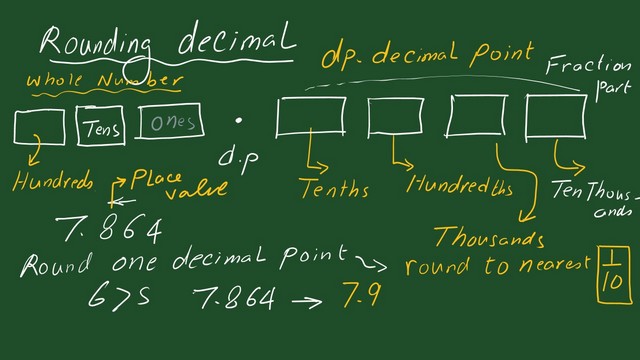 Rounding decimal
dp. decimal point
Whole Number
Fraction part
Tens
Ones
.
d.p
Hundreds
Place value
Tenths
Hundredths
Ten Thousands
Thousands
7.864
Round one decimal point
round to nearest 1/10
6>5 7.864 → 7.9